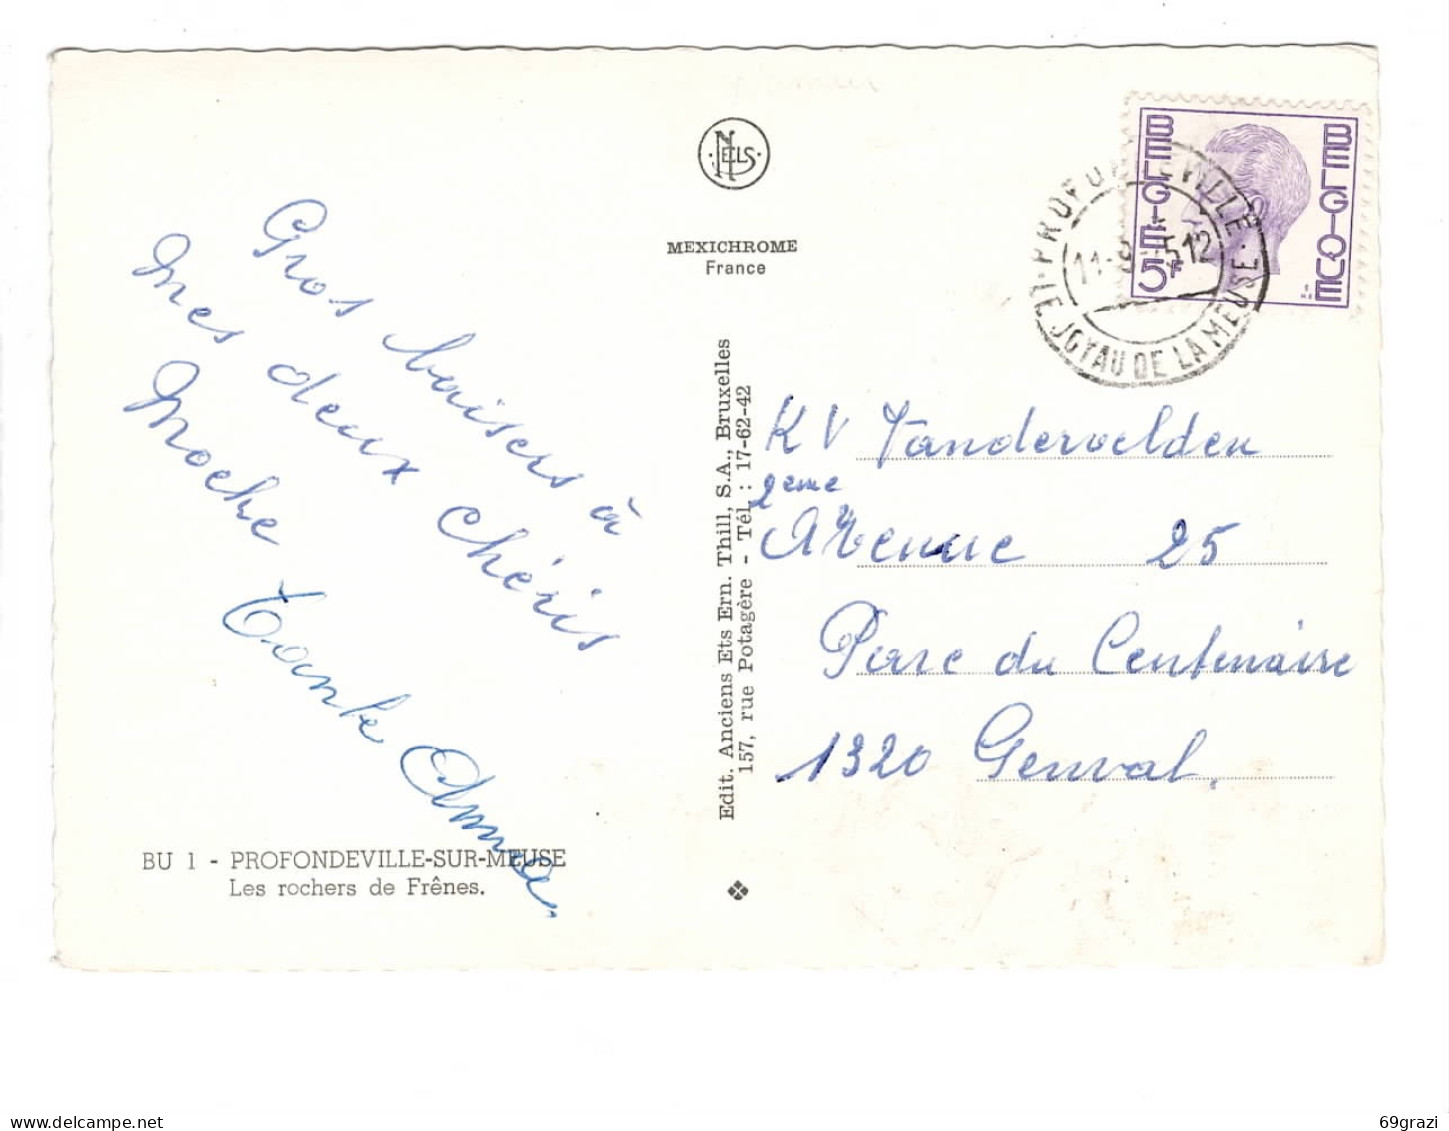 Gros baisers à
mes deux chéris
Moche
tante Aimée
BU 1 - PROFONDEVILLE-SUR-MEUSE
Les rochers de Frênes.
NELS
MEXICHROME
France
Edit. Anciens Ets Ern. Thill, S.A., Bruxelles
157, rue Potagère - Tél. : 17-62-42
BELGIE 5F
BELGIQUE
LE JOYAU DE LA MEUSE
KV Vandervelden
2eme
Avenue 25
Parc du Centenaire
1320 Genval.
delcampe.net
69grazi